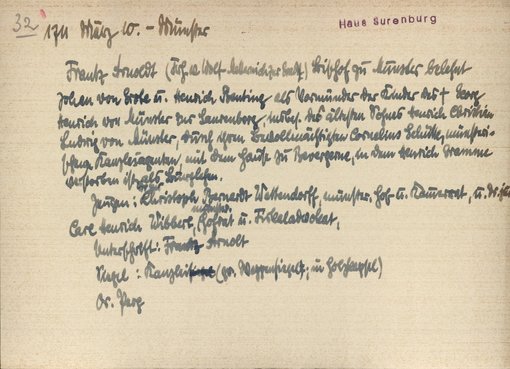 32
1711 März 10. - Münster
Haus Surenburg
Frantz Arnoldt (Frh. v. Wolf-Metternich zur Gracht) Bischof zu Münster belehnt
Johan von Grote u. Henrich Benting als Vormünder der Kinder des † Georg
Henrich von Münster zur Surenborg, insbes. des ältesten Sohnes Henrich Christian
Ludwig von Münster, durch ihren Bevollmächtigten Cornelius Schütte, münsteri-
schen Kanzleiagenten, mit dem Hause zu Bevergerne, in dem Henrich
verstorben ist, als Burglehen.
Zeugen: Christoph Bernardt Wettendorff, münster. Hof u. Kammerrat, u. Dr. jur.
Carl Henrich Wibbert, münster. Hofrat u. Fiskaladvokat,
Unterschrift: Frantz Arnolt
Siegel: Kanzlei (gr. Wappensiegel, in Holzkapsel)
Or. Perg